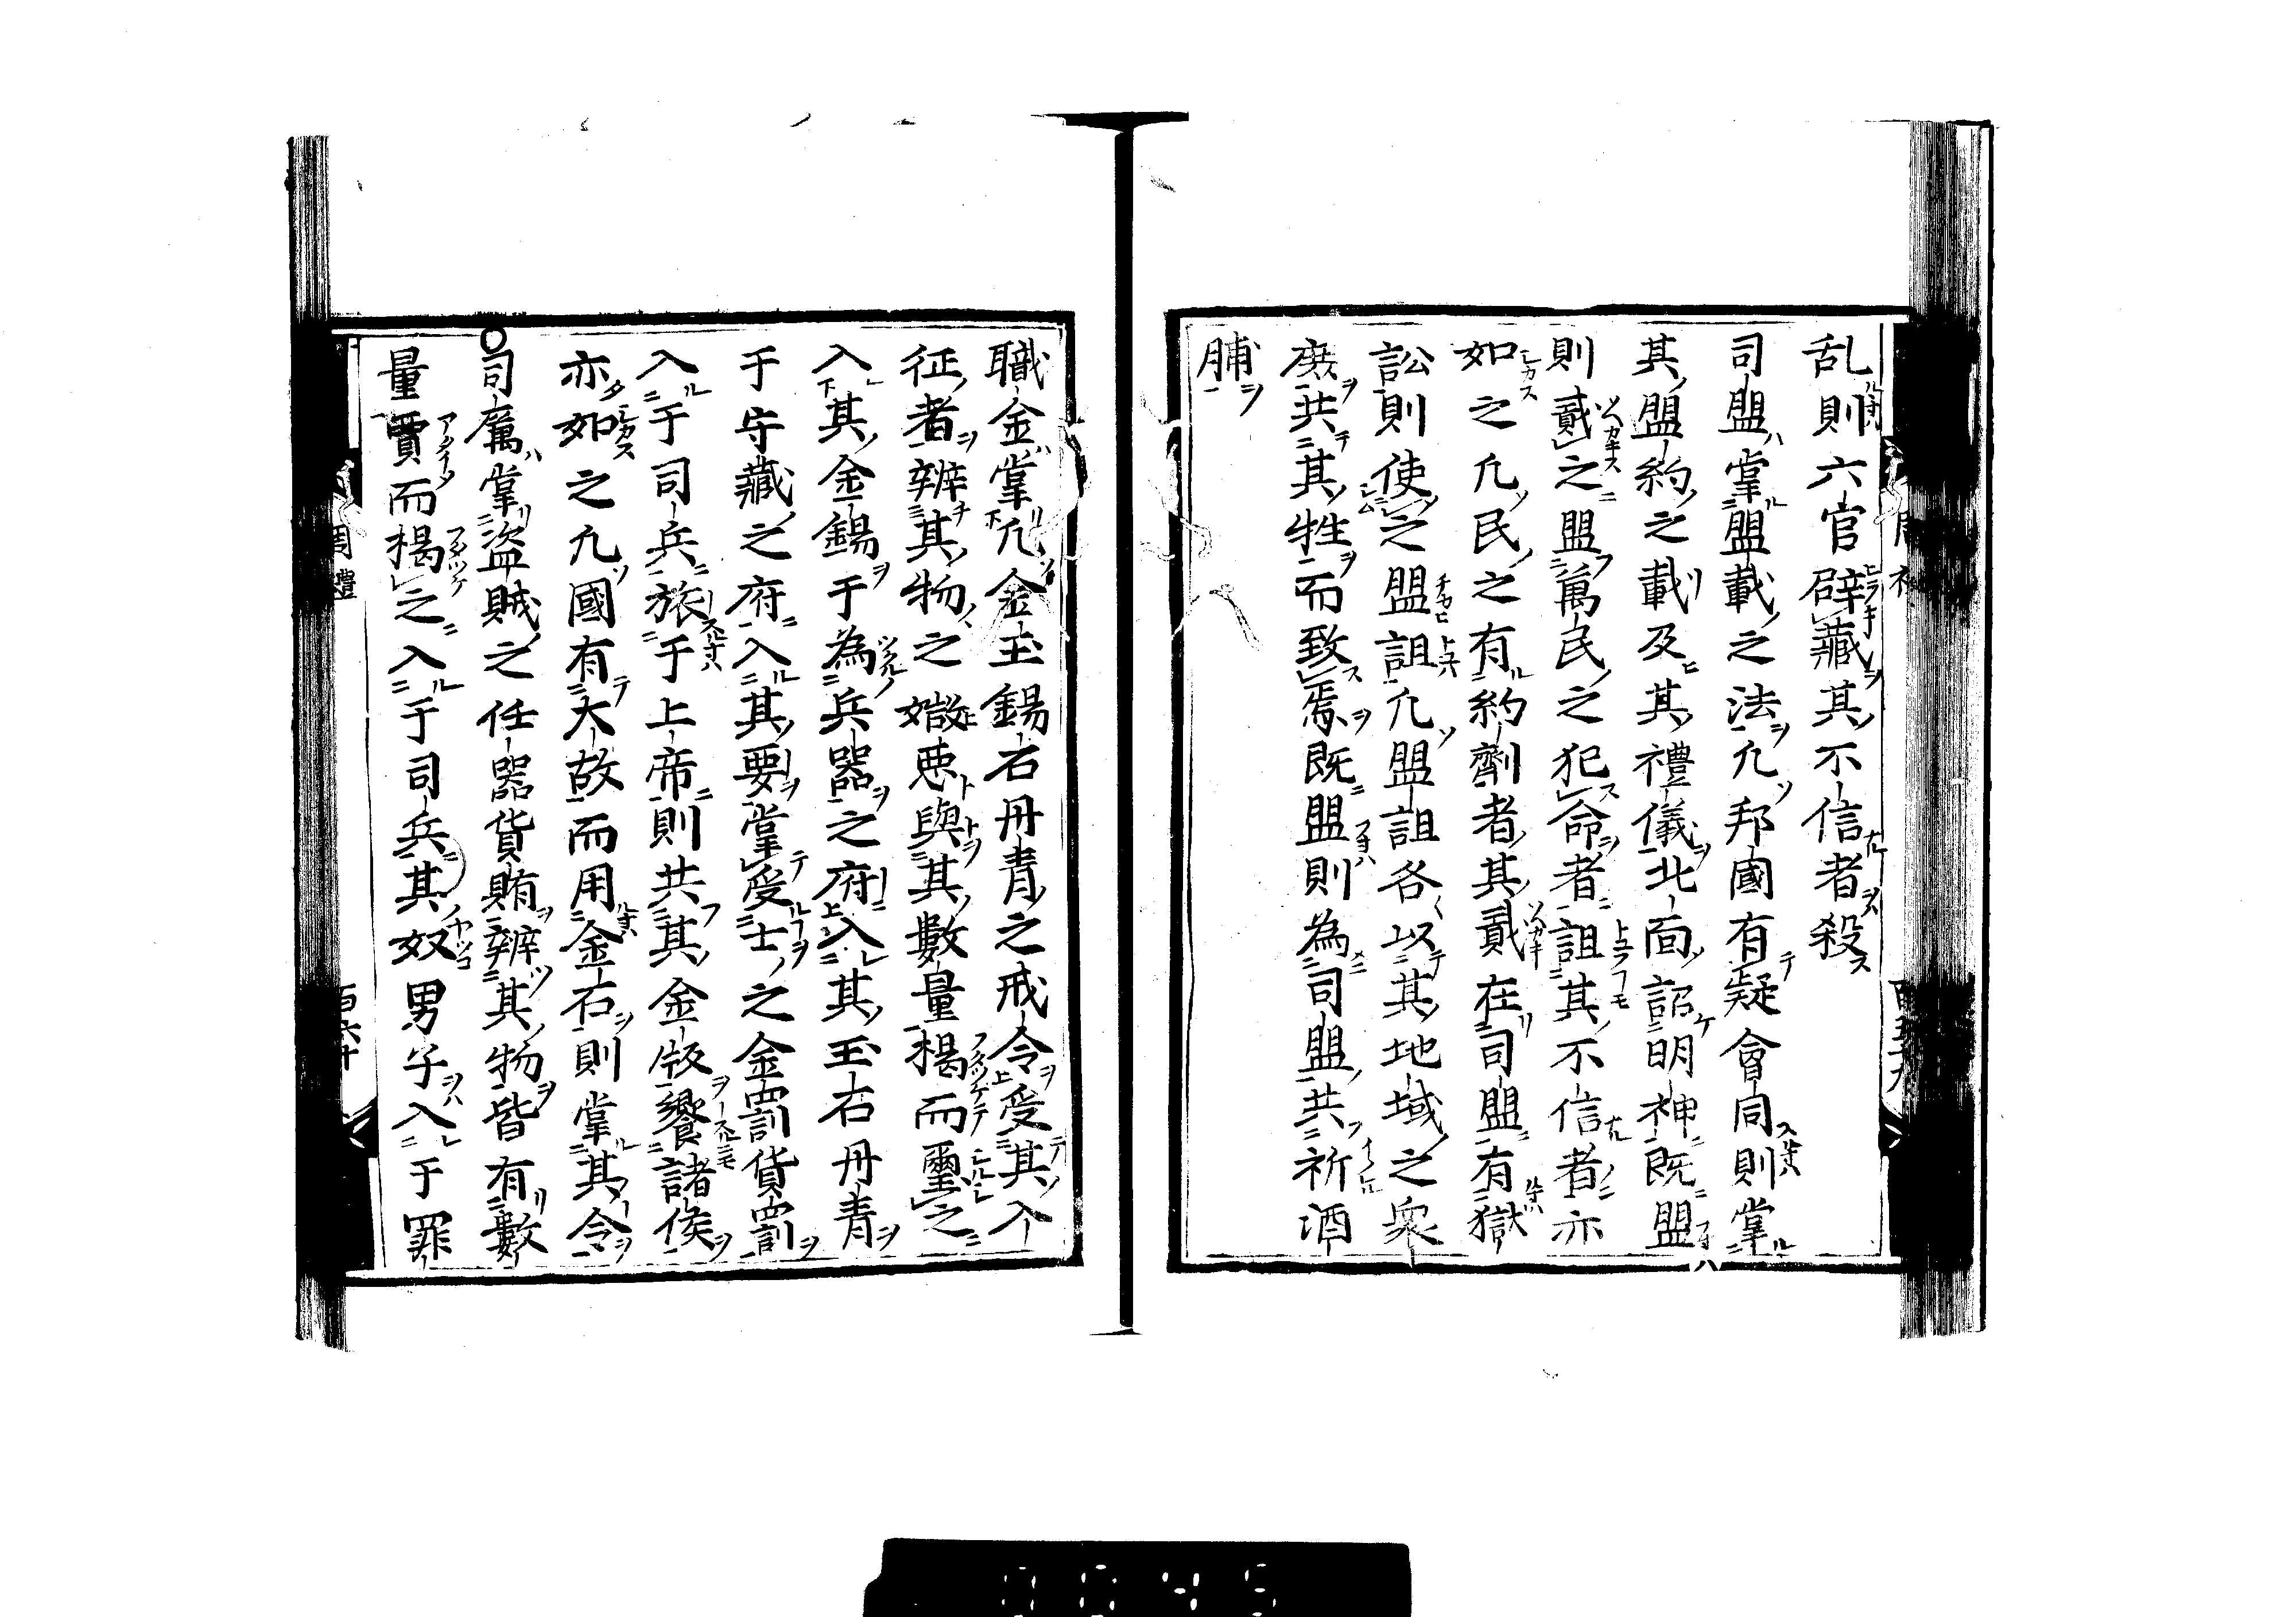 乱則六官辟藏其不信者殺
司盟掌盟載之法凢邦國有疑會同則掌
其盟約之載及其禮儀北面詔明神既盟
則貳之盟萬民之犯命者詛其不信者亦
如之凢民之有約劑者其貳在司盟有獄
訟則使之盟詛凢盟詛各以其地域之衆
庶共其牲而致焉既盟則為司盟共祈酒
脯
職金掌凢金玉錫石丹青之戒令受其入
征者辨其物之媺悪與其數量楬而璽之
入其金錫于為兵器之府入其玉石丹青
于守藏之府入其要掌受士之金罰貨罰
入于司兵旅于上帝則共其金版饗諸侯
亦如之凢國有大故而用金石則掌其令
司厲掌盗賊之任器貨賄辨其物皆有數
量賈而楬之入于司兵其奴男子入于罪
周禮
百六十